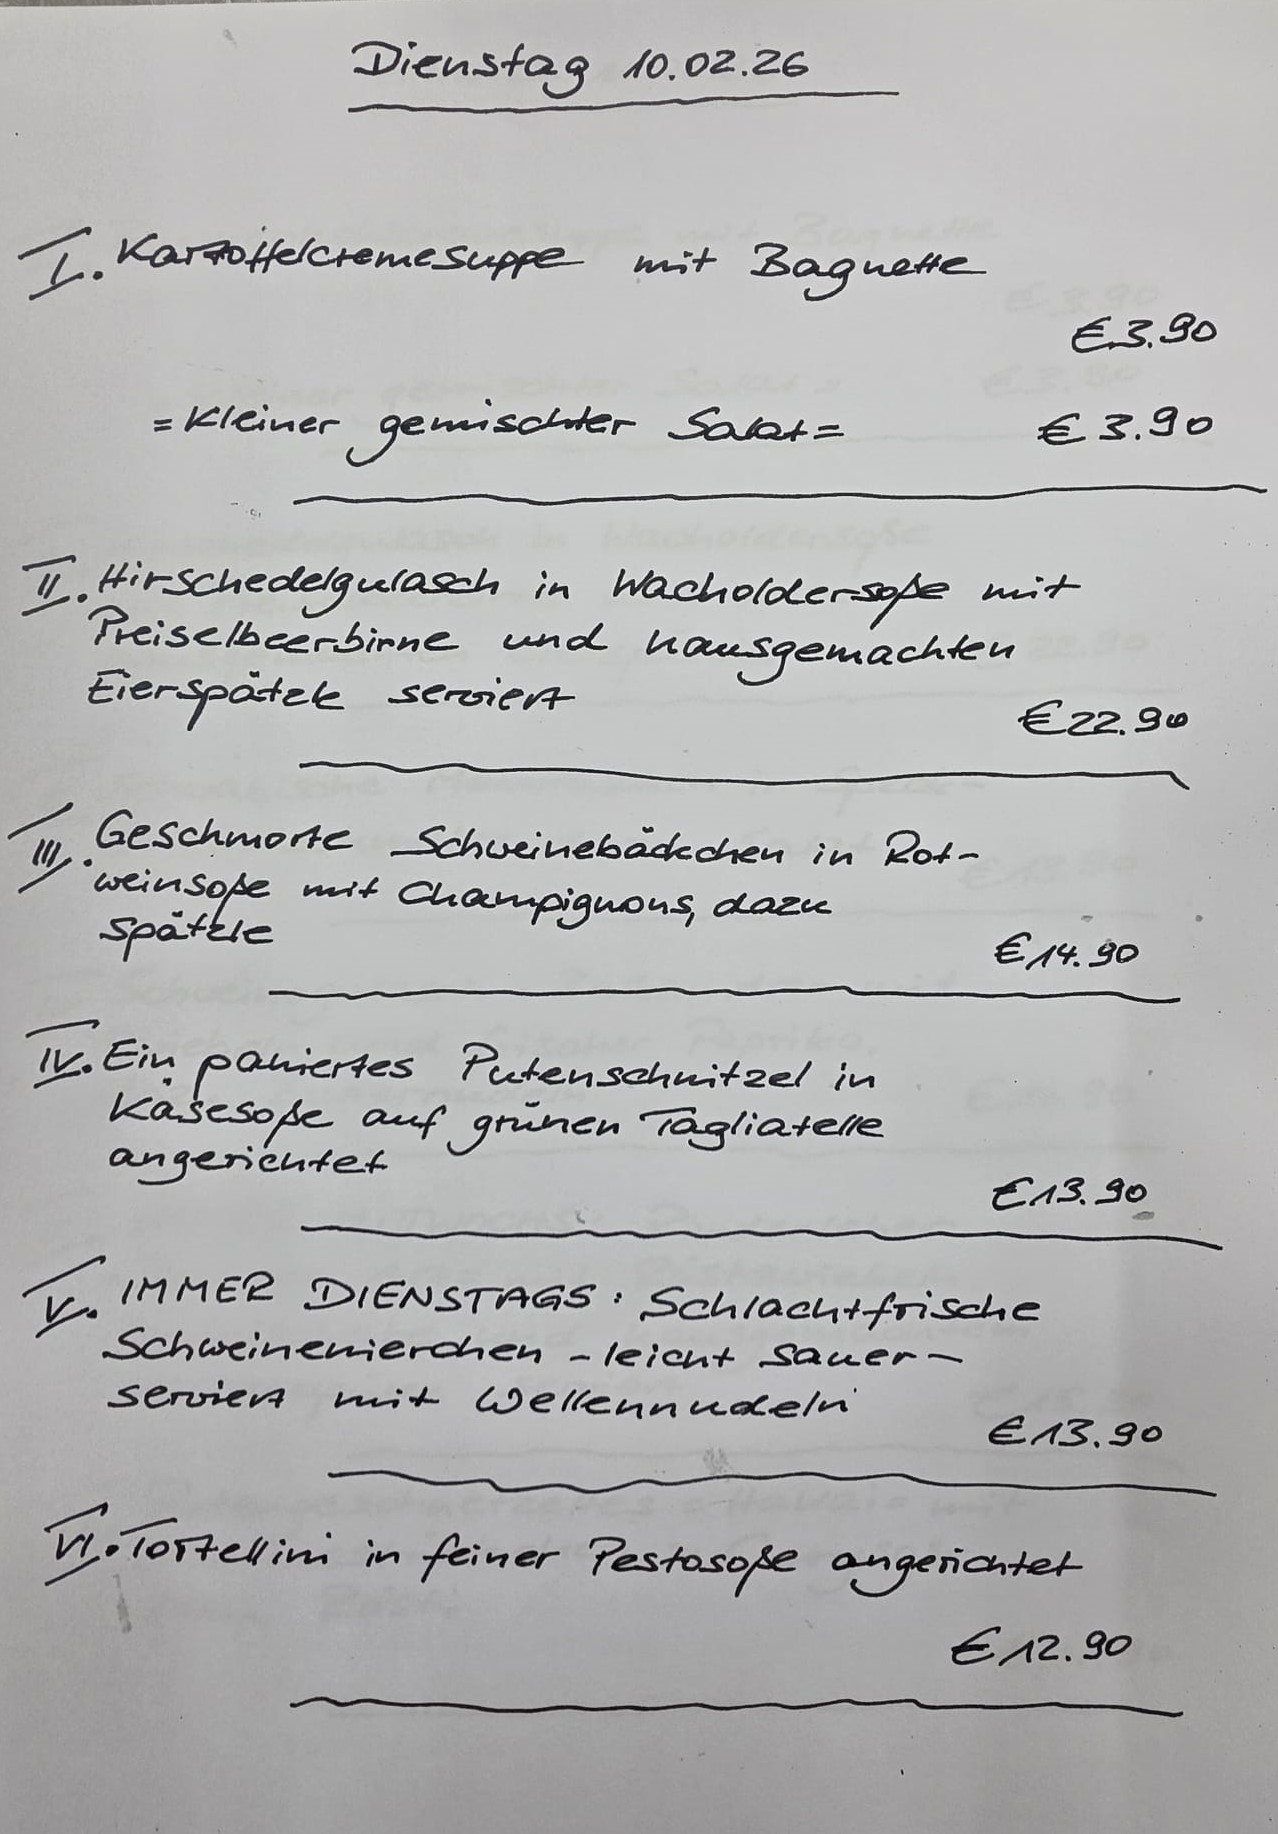 Dienstag 10.02.26
I. Kartoffelcremesuppe mit Baguette
€ 3.90
= Kleiner gemischter Salat = € 3.90
II. Hirschedelgulasch in Wacholdersoße mit
Preiselbeerbirne und hausgemachten
Eierspätzle serviert
€ 22.90
III. Geschmorte Schweinebäckchen in Rot-
weinsoße mit Champignons, dazu
Spätzle
€ 14.90
IV. Ein paniertes Putenschnitzel in
Käsesoße auf grünen Tagliatelle
angerichtet
€ 13.90
V. IMMER DIENSTAGS: Schlachtfrische
Schweinenierchen - leicht sauer -
serviert mit Wellennudeln
€ 13.90
VI. Tortellini in feiner Pestosoße angerichtet
€ 12.90